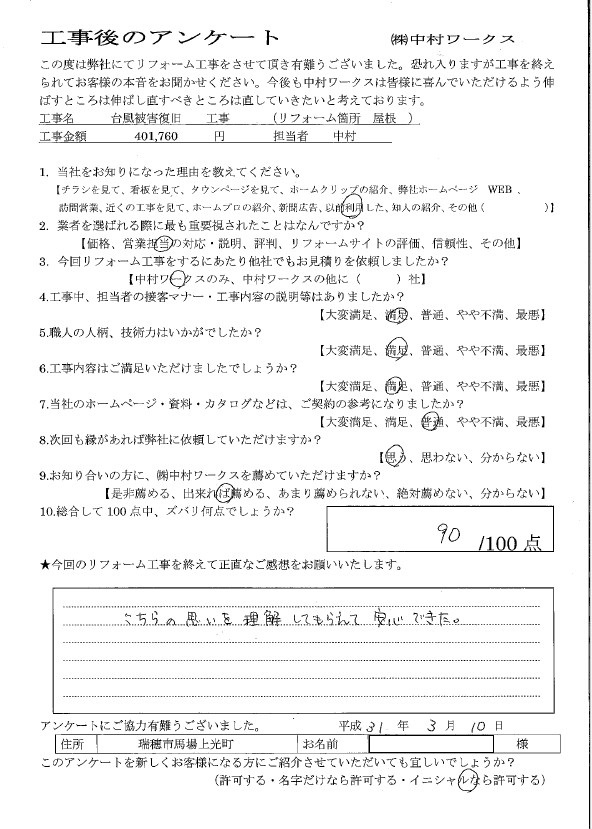 工事後のアンケート　　　㈱中村ワークス
この度は弊社にてリフォーム工事をさせて頂き有難うございました。恐れ入りますが工事を終え
られてお客様の本音をお聞かせください。今後も中村ワークスは皆様に喜んでいただけるよう伸
ばすところは伸ばし直すべきところは直していきたいと考えております。
工事名　　台風被害復旧　　工事　　（リフォーム箇所　屋根　）
工事金額　　401,760　　円　　担当者　　中村
1．当社をお知りになった理由を教えてください。
【チラシを見て、看板を見て、タウンページを見て、ホームクリップの紹介、弊社ホームページ　WEB 、
訪問営業、近くの工事を見て、ホームプロの紹介、新聞広告、以前利用した、知人の紹介、その他（　　　　　）】
2．業者を選ばれる際に最も重要視されたことはなんですか？
【価格、営業担当の対応・説明、評判、リフォームサイトの評価、信頼性、その他】
3．今回リフォーム工事をするにあたり他社でもお見積りを依頼しましたか？
【中村ワークスのみ、中村ワークスの他に（　　　）社】
4.工事中、担当者の接客マナー・工事内容の説明等はありましたか？
【大変満足、満足、普通、やや不満、最悪】
5.職人の人柄、技術力はいかがでしたか？
【大変満足、満足、普通、やや不満、最悪】
6.工事内容はご満足いただけましたでしょうか？
【大変満足、満足、普通、やや不満、最悪】
7.当社のホームページ・資料・カタログなどは、ご契約の参考になりましたか？
【大変満足、満足、普通、やや不満、最悪】
8.次回も縁があれば弊社に依頼していただけますか？
【思う、思わない、分からない】
9.お知り合いの方に、㈱中村ワークスを薦めていただけますか？
【是非薦める、出来れば薦める、あまり薦められない、絶対薦めない、分からない】
10.総合して 100 点中、ズバリ何点でしょうか？
90　/100 点
★今回のリフォーム工事を終えて正直なご感想をお願いいたします。
こちらの思いを理解してもらえて安心できた。
アンケートにご協力有難うございました。　　　平成 31 年 3 月 10 日
住所　　瑞穂市馬場上光町　　お名前　　　　　　様
このアンケートを新しくお客様になる方にご紹介させていただいても宜しいでしょうか？
（許可する・名字だけなら許可する・イニシャルなら許可する）